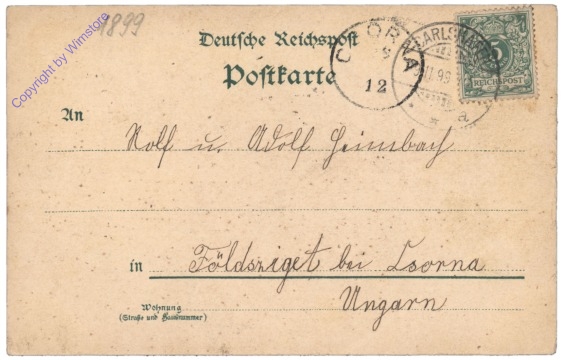 1899
Copyright by Wimstore
Deutsche Reichspost
Postkarte
CSORNA
12
CARLSHAFEN
99
a
5
REICHSPOST
An
Rolf u. Adolf Heimbach
in Földsziget bei Csorna
Ungarn
Wohnung
(Straße und Hausnummer)